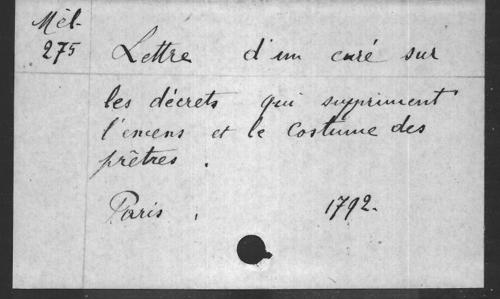 Mél.
275
Lettre d'un curé sur
les décrets qui suppriment
l'encens et le costume des
prêtres.
Paris, 1792.